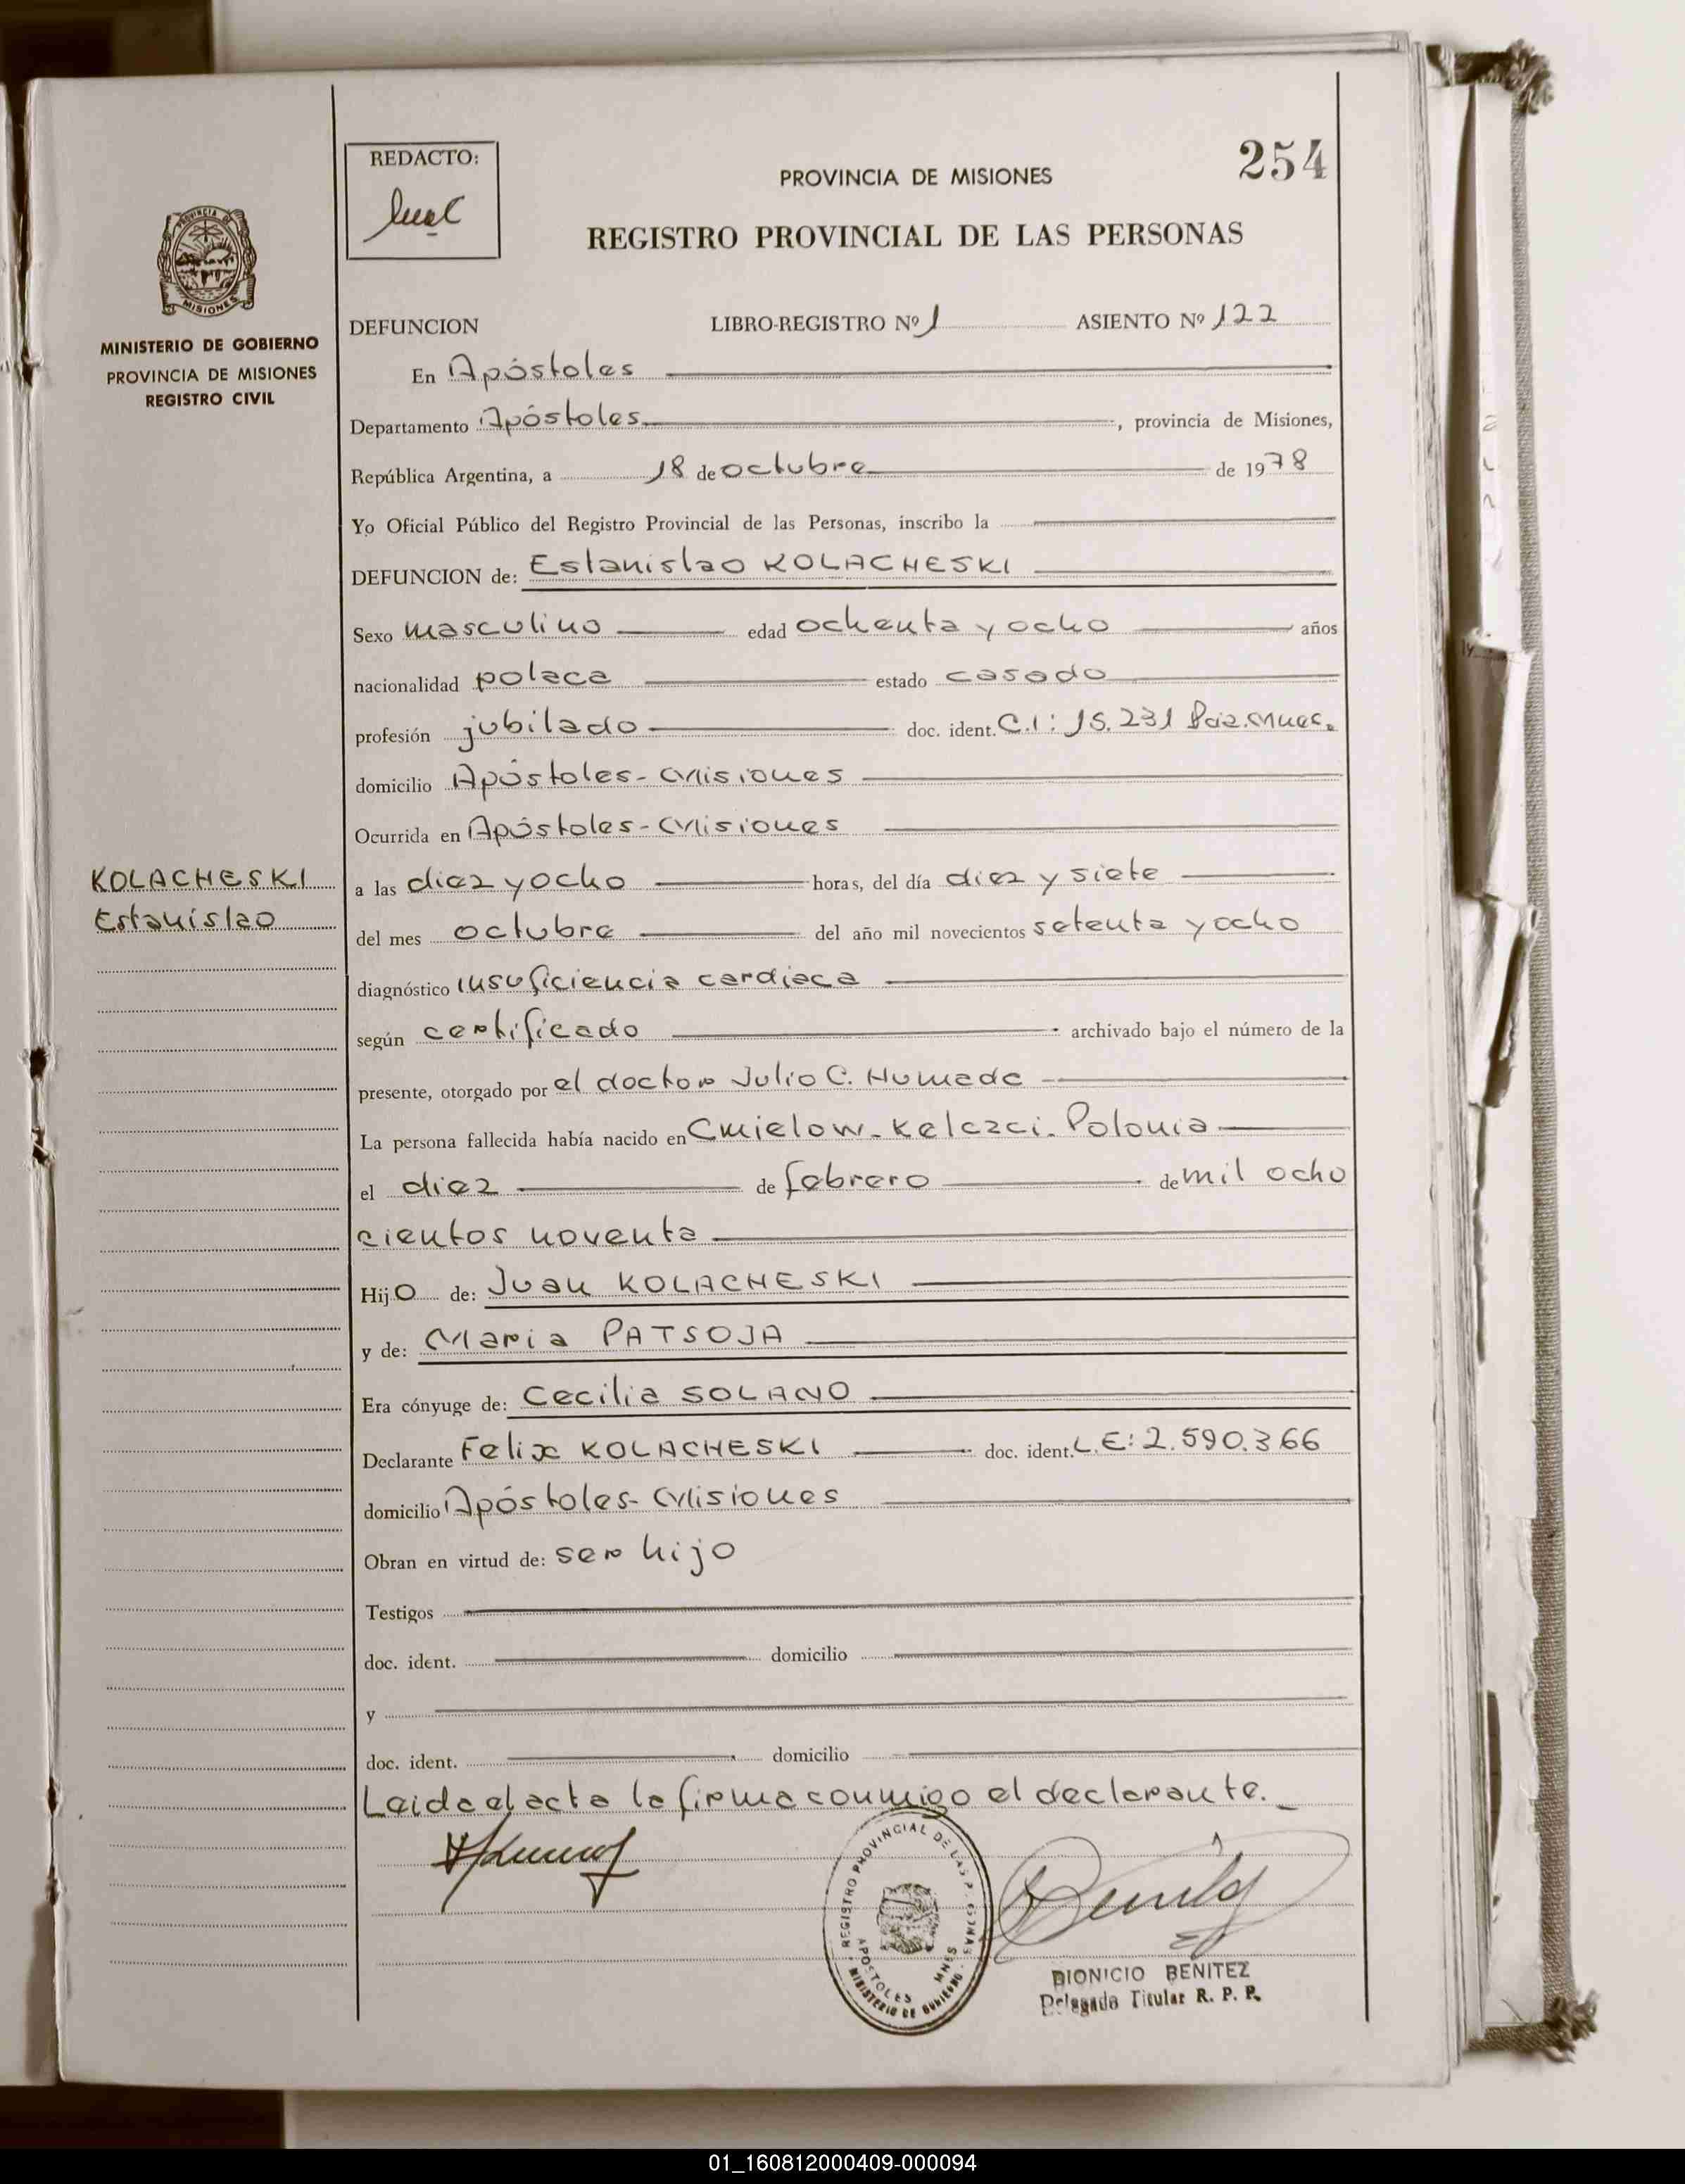 254
REDACTO:
PROVINCIA DE MISIONES
REGISTRO PROVINCIAL DE LAS PERSONAS
PROVINCIA DE
MISIONES
MINISTERIO DE GOBIERNO
PROVINCIA DE MISIONES
REGISTRO CIVIL
DEFUNCION LIBRO-REGISTRO Nº 1 ASIENTO Nº 122
En Apóstoles
Departamento Apóstoles, provincia de Misiones,
República Argentina, a 18 de octubre de 1978
Yo Oficial Público del Registro Provincial de las Personas, inscribo la
DEFUNCION de: Estanislao KOLACHESKI
Sexo masculino edad ochenta y ocho años
nacionalidad polaca estado casado
profesión jubilado doc. ident. C.I: 15.231 Pcia. Mnes.
domicilio Apóstoles - Misiones
Ocurrida en Apóstoles - Misiones
KOLACHESKI
Estanislao
a las diez y ocho horas, del día diez y siete
del mes octubre del año mil novecientos setenta y ocho
diagnóstico insuficiencia cardiaca
según certificado archivado bajo el número de la
presente, otorgado por el doctor Julio C. Humada
La persona fallecida había nacido en Cmielow - Kelczci - Polonia
el diez de febrero de mil ocho
cientos noventa
Hijo de: Juan KOLACHESKI
y de: Maria PATSOJA
Era cónyuge de: Cecilia SOLANO
Declarante Felix KOLACHESKI doc. ident. L.E: 2.590.366
domicilio Apóstoles - Misiones
Obran en virtud de: ser hijo
Testigos
doc. ident. domicilio
y
doc. ident. domicilio
Leida el acta la firma conmigo el declarante.
REGISTRO PROVINCIAL DE LAS PERSONAS
APOSTOLES MNES
MINISTERIO DE GOBIERNO
DIONICIO BENITEZ
Delegado Titular R. P. P.
01_160812000409-000094